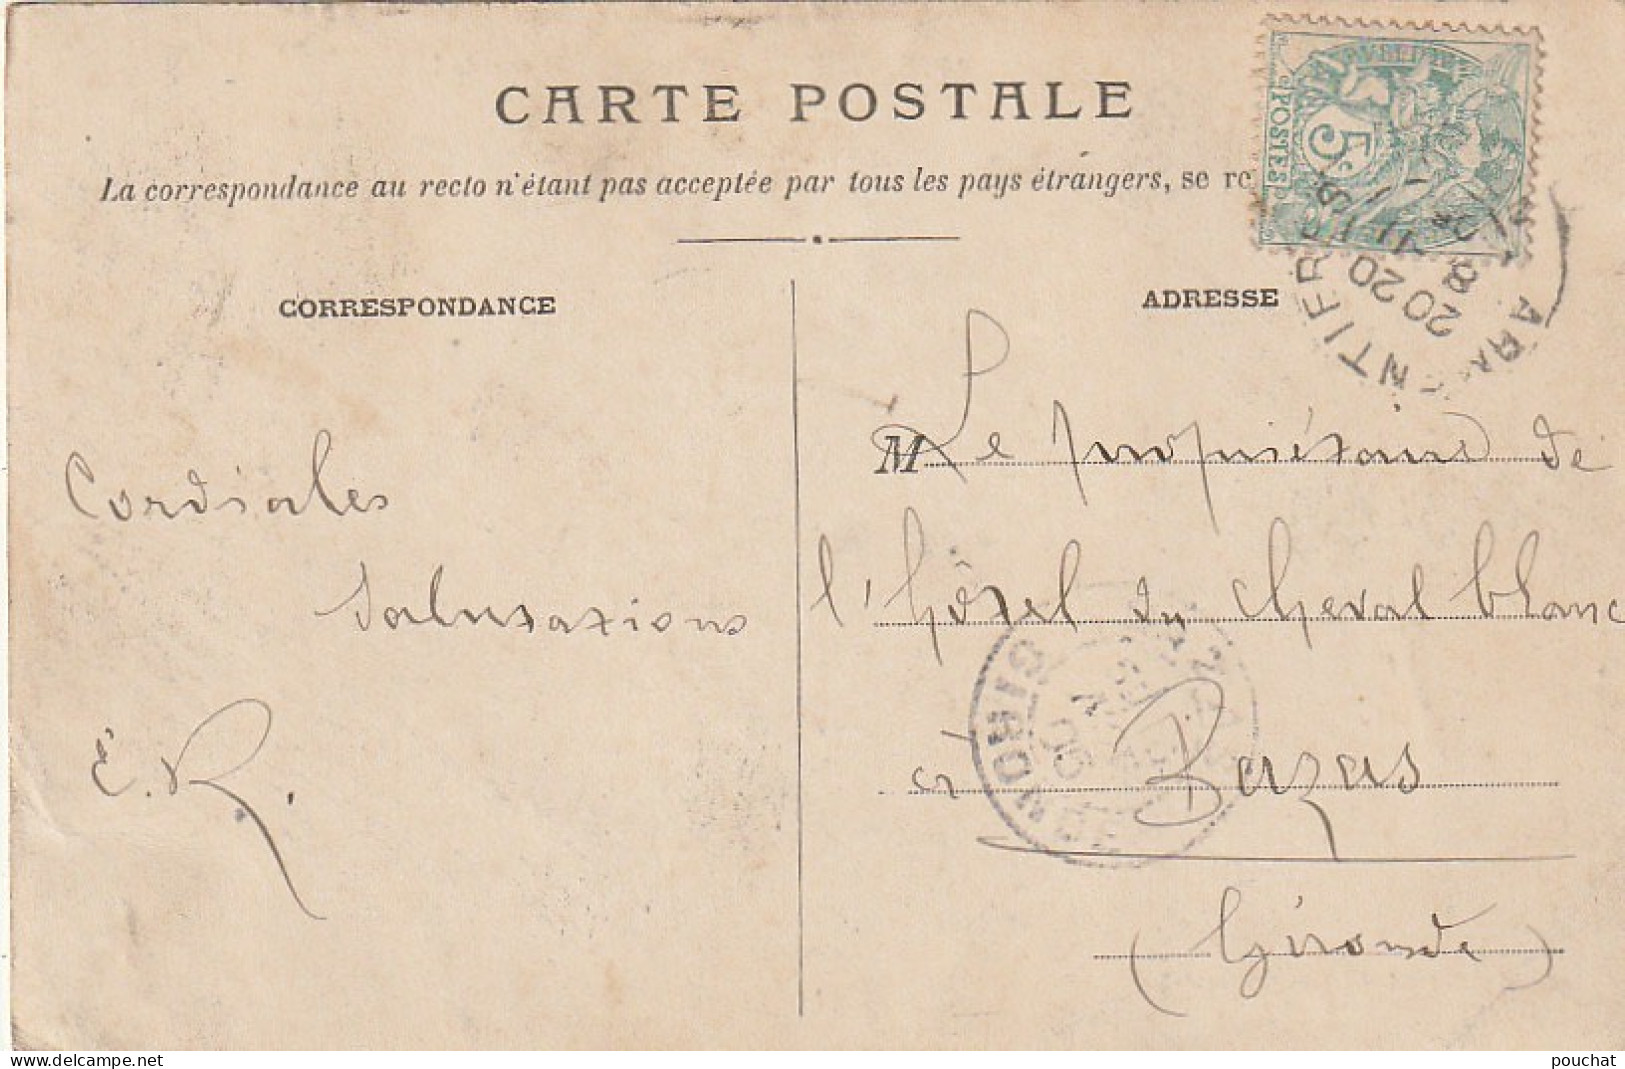 CARTE POSTALE
La correspondance au recto n'étant pas acceptée par tous les pays étrangers, se re
POSTES
5c
CORRESPONDANCE
ADRESSE
Cordiales
Salutations
E. R.
M Le propriétaire de
l'hôtel du cheval blanc
à Bazas
(Gironde)
GIRONDE
delcampe.net
pouchat